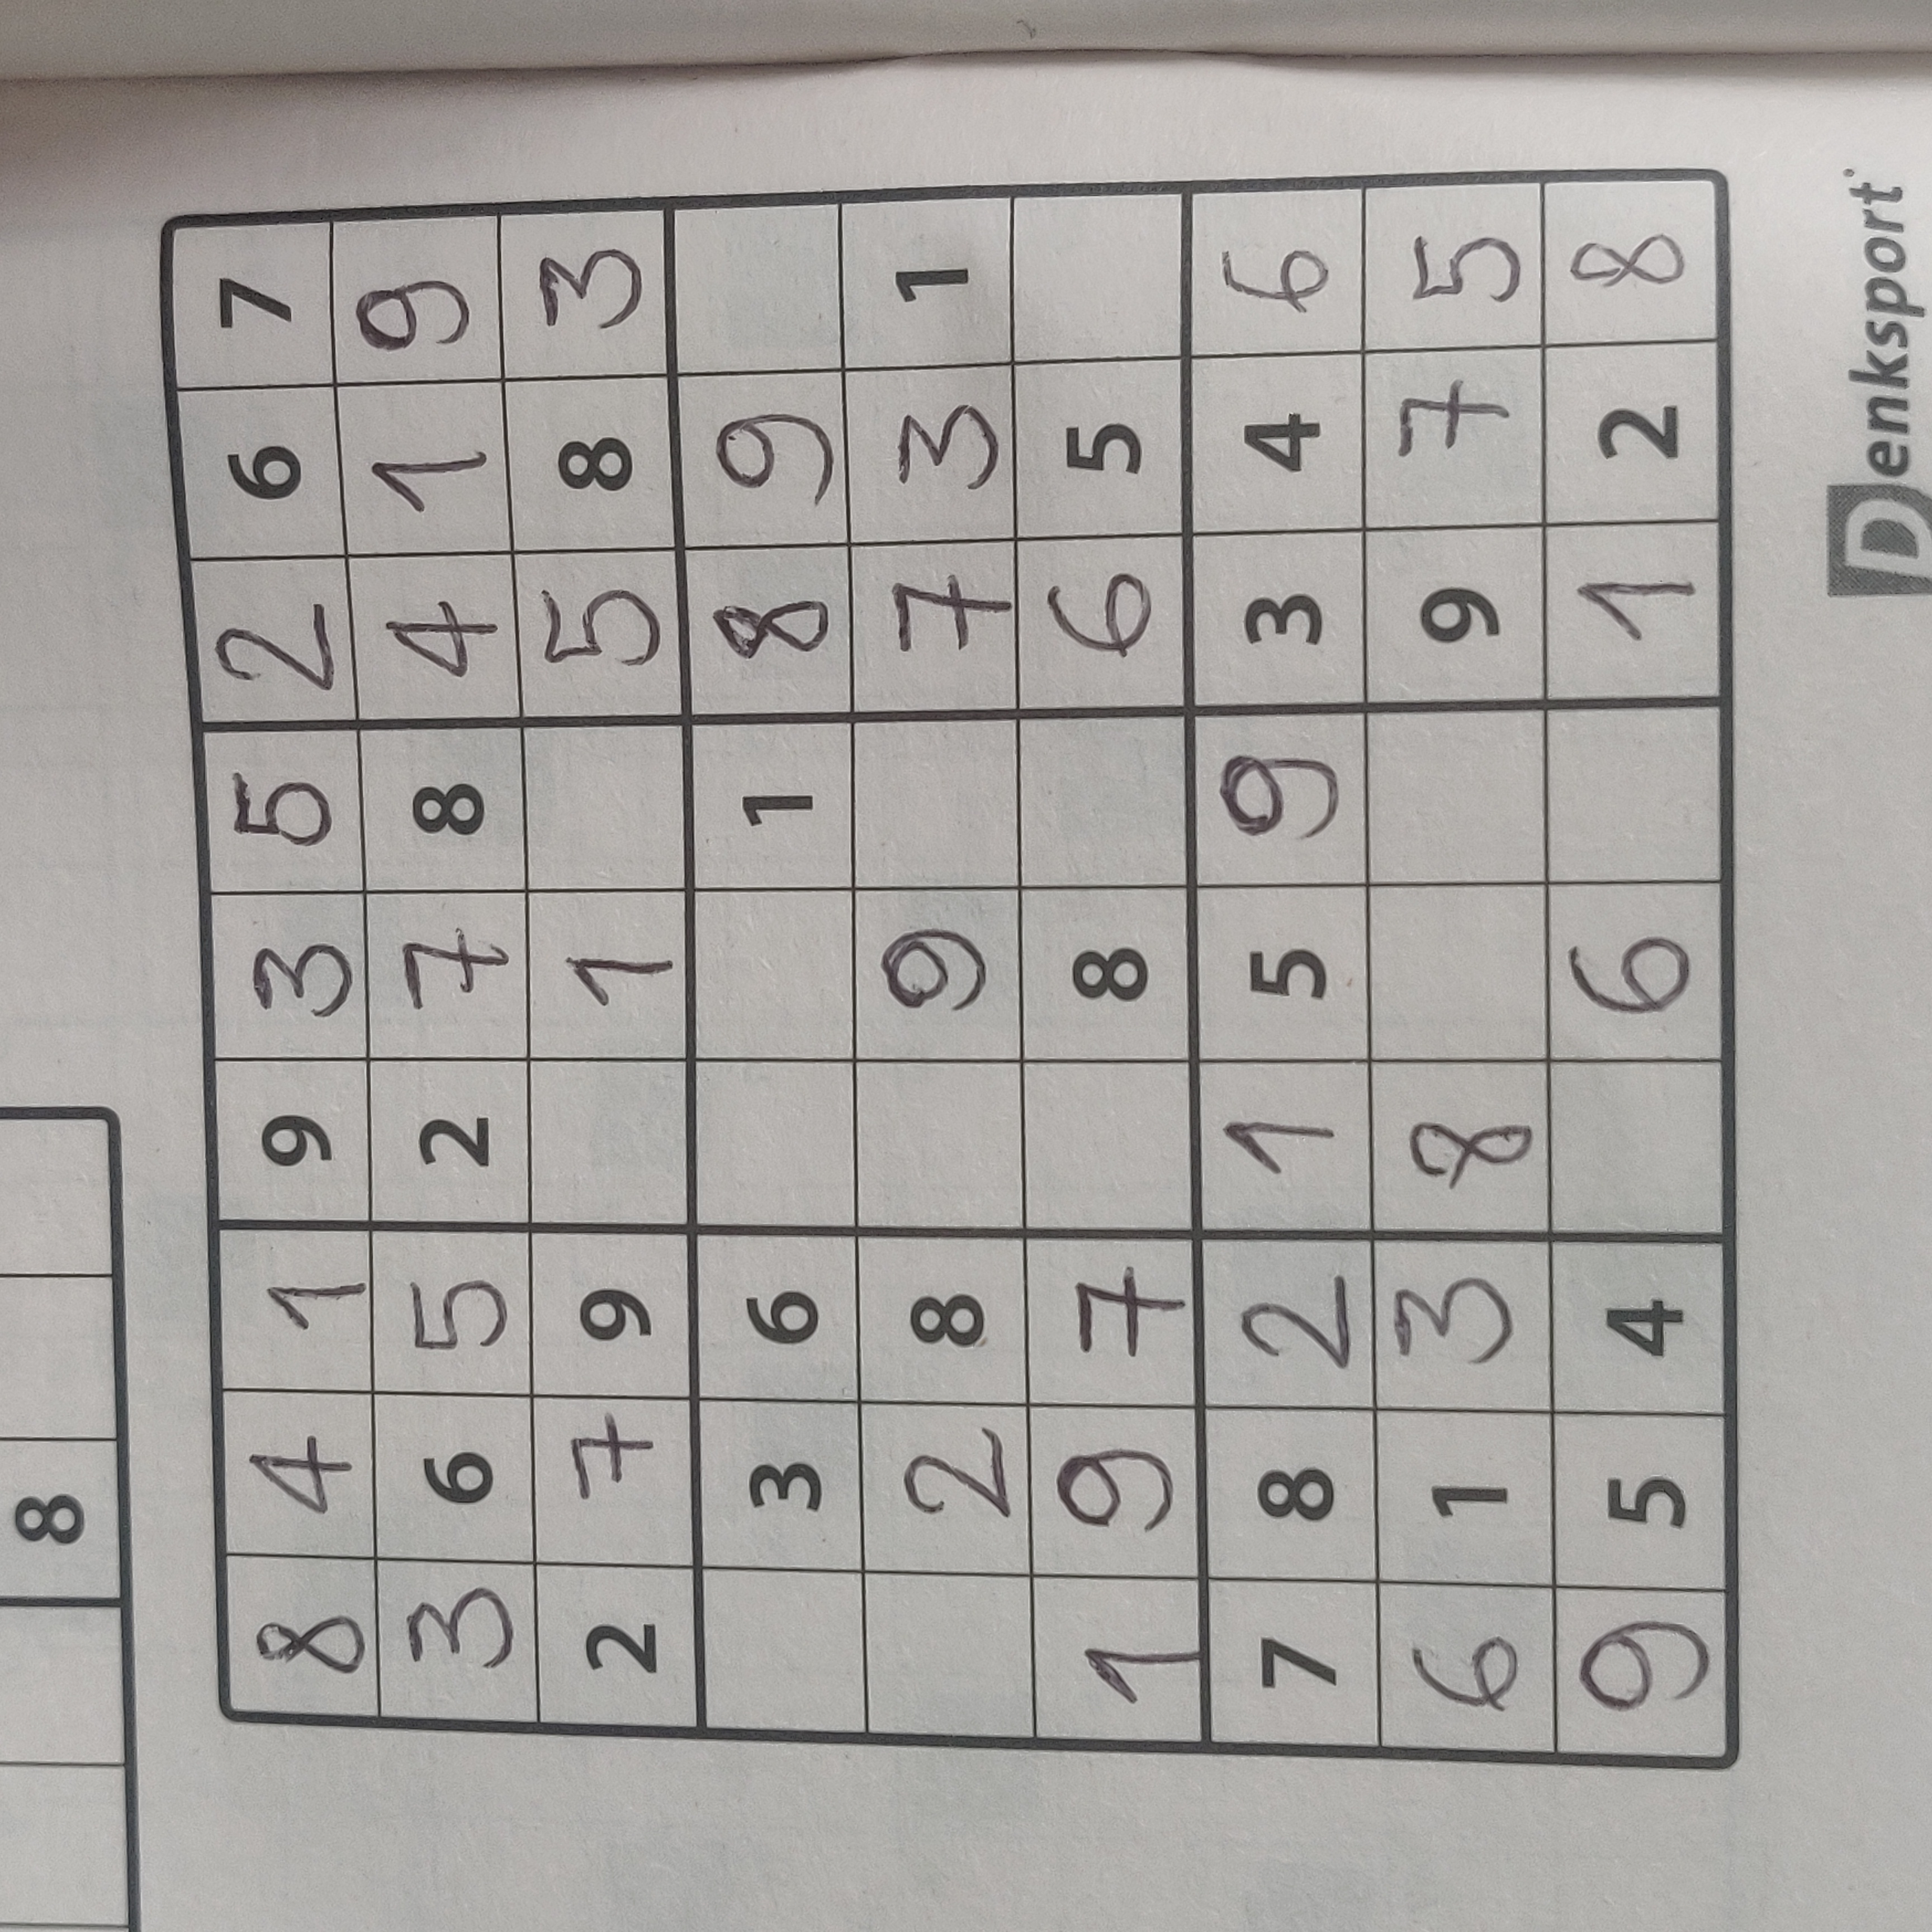 8
8 4 1 9 3 5 2 6 7
3 6 5 2 7 8 4 1 9
2 7 9 1 5 8 3
3 6 1 8 9
2 8 9 7 3 1
1 9 7 8 6 5
7 8 2 1 5 9 3 4 6
6 1 3 8 9 7 5
9 5 4 6 1 2 8
Denksport